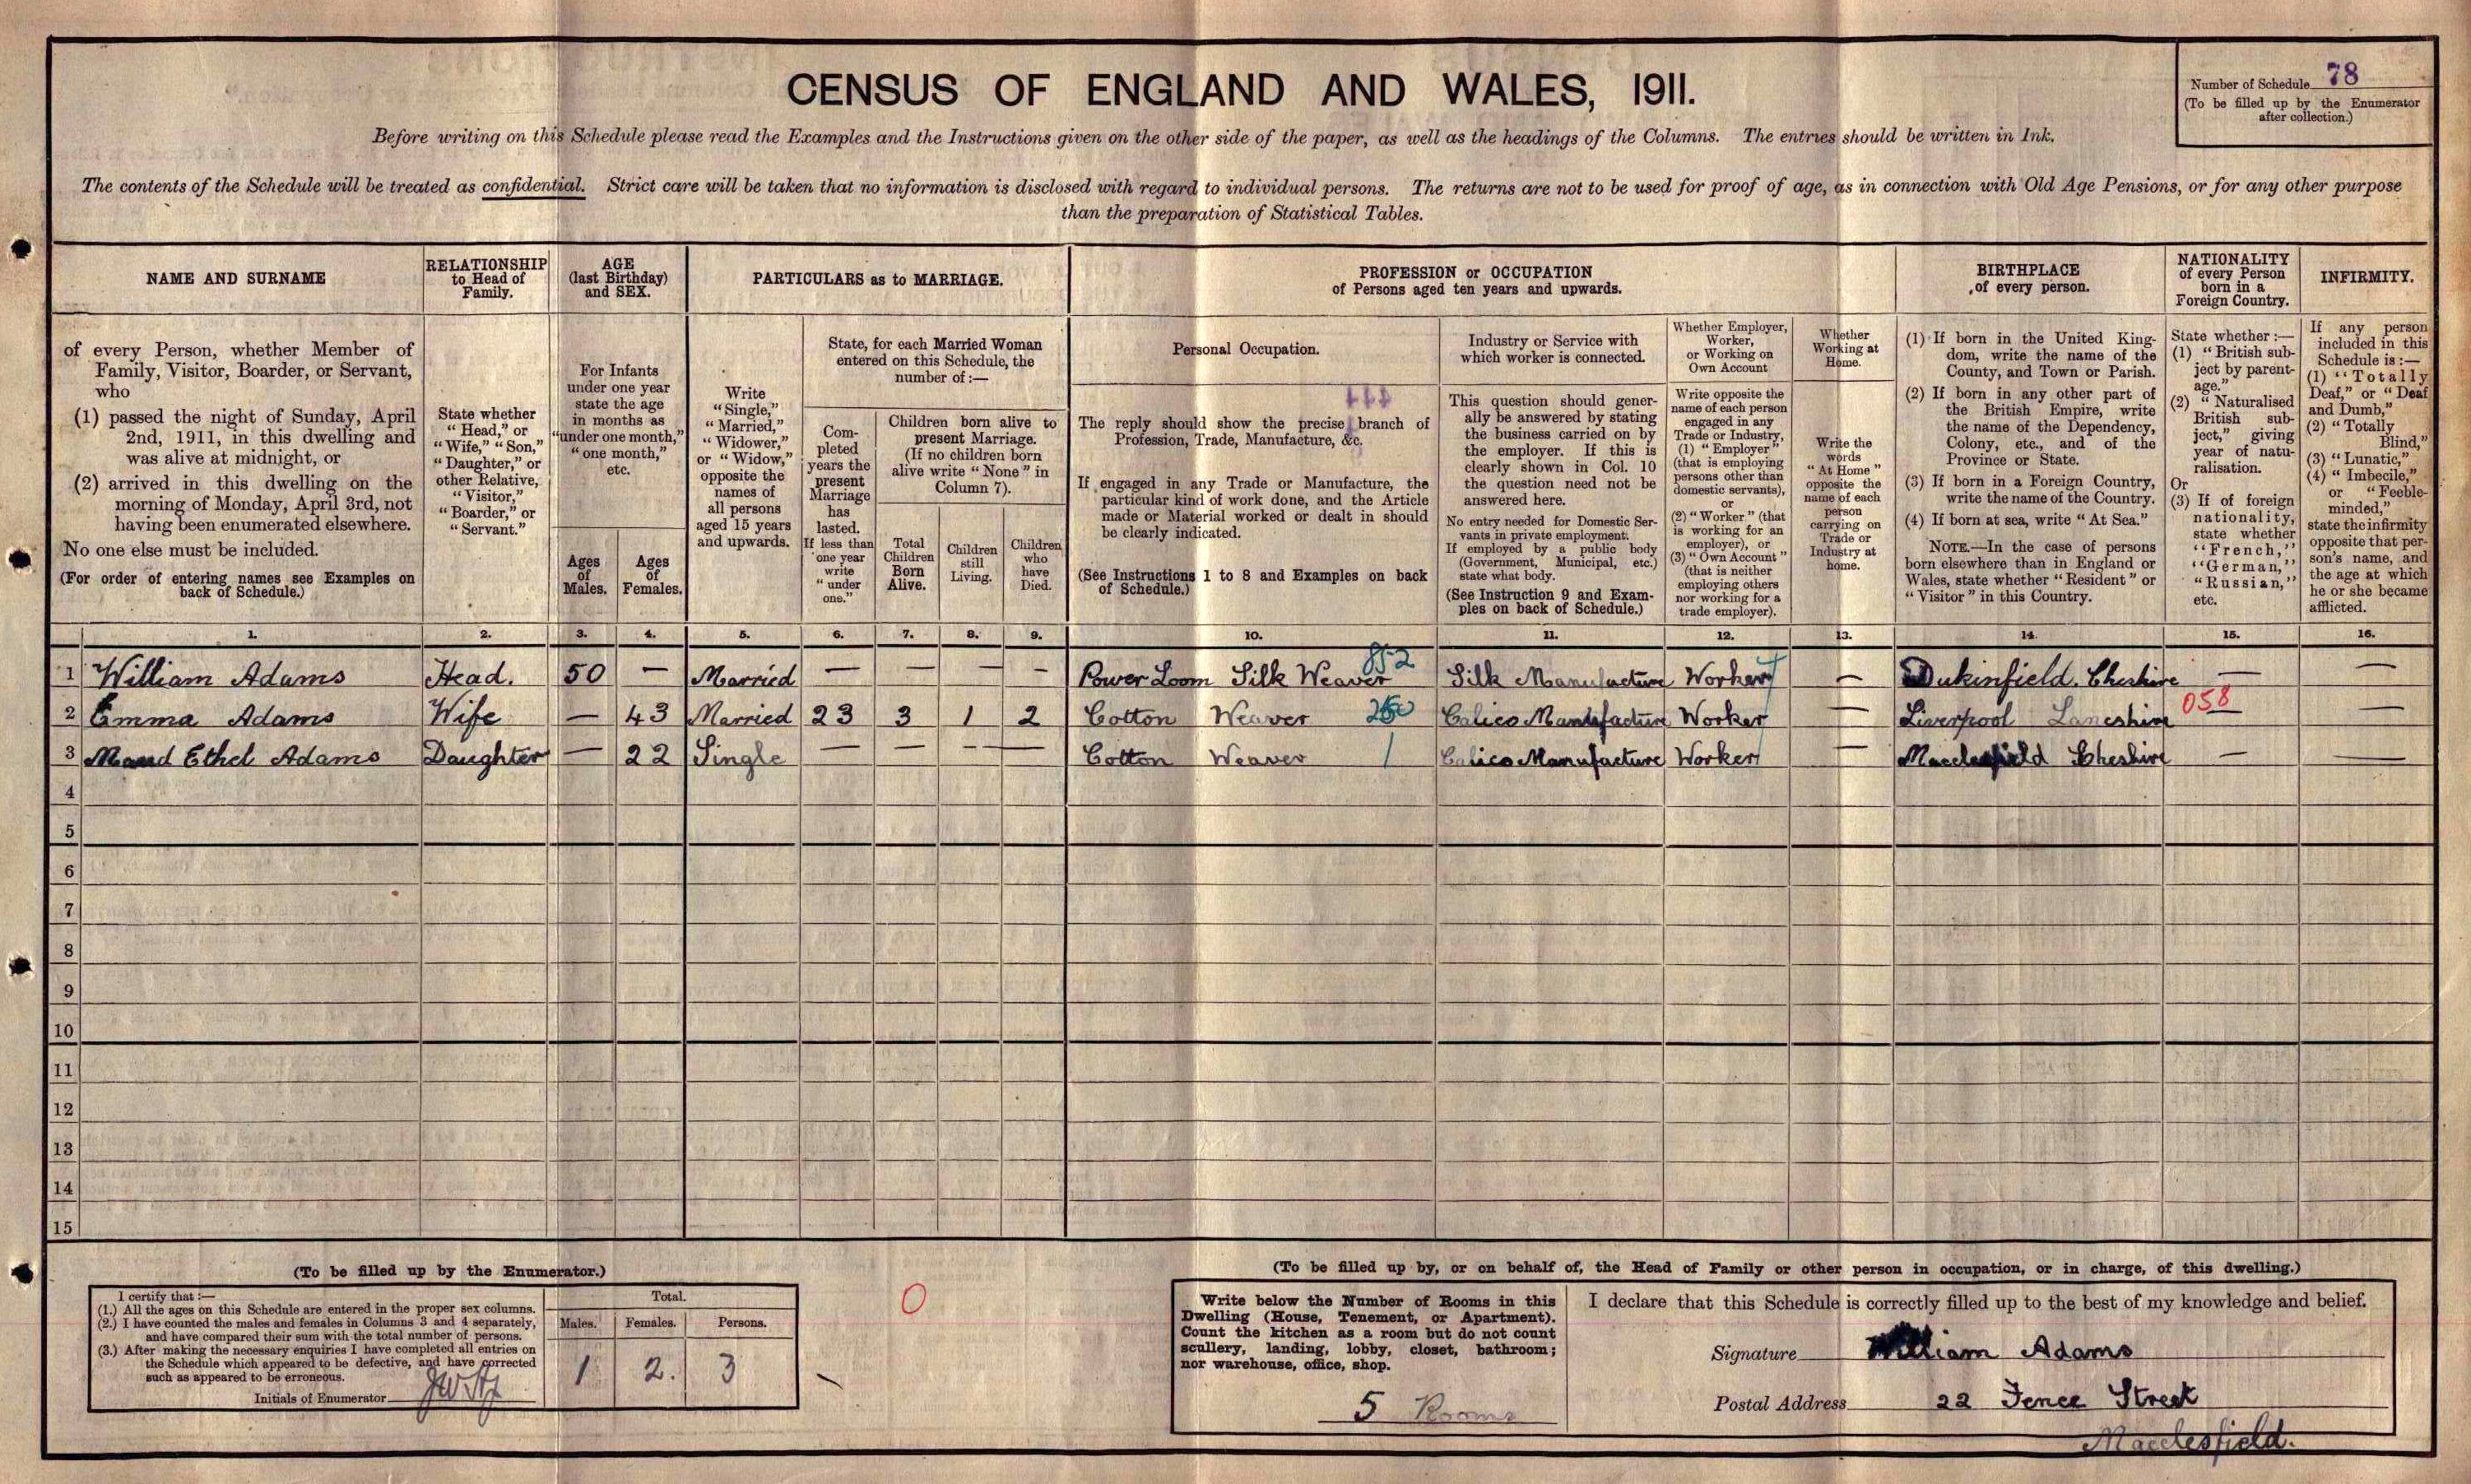 CENSUS OF ENGLAND AND WALES, 1911.
Number of Schedule 78
(To be filled up by the Enumerator
after collection.)
Before writing on this Schedule please read the Examples and the Instructions given on the other side of the paper, as well as the headings of the Columns. The entries should be written in Ink.
The contents of the Schedule will be treated as confidential. Strict care will be taken that no information is disclosed with regard to individual persons. The returns are not to be used for proof of age, as in connection with Old Age Pensions, or for any other purpose
than the preparation of Statistical Tables.
NAME AND SURNAME
of every Person, whether Member of
Family, Visitor, Boarder, or Servant,
who
(1) passed the night of Sunday, April
2nd, 1911, in this dwelling and
was alive at midnight, or
(2) arrived in this dwelling on the
morning of Monday, April 3rd, not
having been enumerated elsewhere.
No one else must be included.
(For order of entering names see Examples on
back of Schedule.)
RELATIONSHIP
to Head of
Family.
State whether
"Head," or
"Wife," "Son,"
"Daughter," or
other Relative,
"Visitor,"
"Boarder," or
"Servant."
AGE
(last Birthday)
and SEX.
For Infants
under one year
state the age
in months as
"under one month,"
"one month,"
etc.
Ages
of
Males.
Ages
of
Females.
PARTICULARS as to MARRIAGE.
Write
"Single,"
"Married,"
"Widower,"
or "Widow,"
opposite the
names of
all persons
aged 15 years
and upwards.
State, for each Married Woman
entered on this Schedule, the
number of:—
Com-
pleted
years the
present
Marriage
has
lasted.
If less than
one year
write
"under
one."
Children born alive to
present Marriage.
(If no children born
alive write "None" in
Column 7).
Total
Children
Born
Alive.
Children
still
Living.
Children
who
have
Died.
PROFESSION or OCCUPATION
of Persons aged ten years and upwards.
Personal Occupation.
The reply should show the precise branch of
Profession, Trade, Manufacture, &c.
If engaged in any Trade or Manufacture, the
particular kind of work done, and the Article
made or Material worked or dealt in should
be clearly indicated.
(See Instructions 1 to 8 and Examples on back
of Schedule.)
Industry or Service with
which worker is connected.
This question should gener-
ally be answered by stating
the business carried on by
the employer. If this is
clearly shown in Col. 10
the question need not be
answered here.
No entry needed for Domestic Ser-
vants in private employment.
If employed by a public body
(Government, Municipal, etc.)
state what body.
(See Instruction 9 and Exam-
ples on back of Schedule.)
Whether Employer,
Worker,
or Working on
Own Account
Write opposite the
name of each person
engaged in any
Trade or Industry,
(1) "Employer"
(that is employing
persons other than
domestic servants),
or
(2) "Worker" (that
is working for an
employer), or
(3) "Own Account"
(that is neither
employing others
nor working for a
trade employer).
Whether
Working at
Home.
Write the
words
"At Home"
opposite the
name of each
person
carrying on
Trade or
Industry at
home.
BIRTHPLACE
of every person.
(1) If born in the United King-
dom, write the name of the
County, and Town or Parish.
(2) If born in any other part of
the British Empire, write
the name of the Dependency,
Colony, etc., and of the
Province or State.
(3) If born in a Foreign Country,
write the name of the Country.
(4) If born at sea, write "At Sea."
NOTE.—In the case of persons
born elsewhere than in England or
Wales, state whether "Resident" or
"Visitor" in this Country.
NATIONALITY
of every Person
born in a
Foreign Country.
State whether:—
(1) "British sub-
ject by parent-
age."
(2) "Naturalised
British sub-
ject," giving
year of natu-
ralisation.
Or
(3) If of foreign
nationality,
state whether
"French,"
"German,"
"Russian,"
etc.
INFIRMITY.
If any person
included in this
Schedule is:—
(1) "Totally
Deaf," or "Deaf
and Dumb,"
(2) "Totally
Blind,"
(3) "Lunatic,"
(4) "Imbecile,"
or "Feeble-
minded,"
state the infirmity
opposite that per-
son's name, and
the age at which
he or she became
afflicted.
1. 2. 3. 4. 5. 6. 7. 8. 9. 10. 11. 12. 13. 14. 15. 16.
1 William Adams Head. 50 — Married — — — — Power Loom Silk Weaver 852 Silk Manufacture Worker — Dukinfield. Cheshire — —
2 Emma Adams Wife — 43 Married 23 3 1 2 Cotton Weaver Calico Manufacture Worker — Liverpool Lancshire 058 —
3 Maud Ethel Adams Daughter — 22 Single — — — — Cotton Weaver Calico Manufacture Worker — Macclesfield Cheshire — —
4
5
6
7
8
9
10
11
12
13
14
15
(To be filled up by the Enumerator.)
I certify that:—
(1.) All the ages on this Schedule are entered in the proper sex columns.
(2.) I have counted the males and females in Columns 3 and 4 separately,
and have compared their sum with the total number of persons.
(3.) After making the necessary enquiries I have completed all entries on
the Schedule which appeared to be defective, and have corrected
such as appeared to be erroneous.
Initials of Enumerator
Total.
Males. Females. Persons.
1 2. 3
0
(To be filled up by, or on behalf of, the Head of Family or other person in occupation, or in charge, of this dwelling.)
Write below the Number of Rooms in this
Dwelling (House, Tenement, or Apartment).
Count the kitchen as a room but do not count
scullery, landing, lobby, closet, bathroom;
nor warehouse, office, shop.
5 Rooms
I declare that this Schedule is correctly filled up to the best of my knowledge and belief.
Signature William Adams
Postal Address 22 Fence Street
Macclesfield.